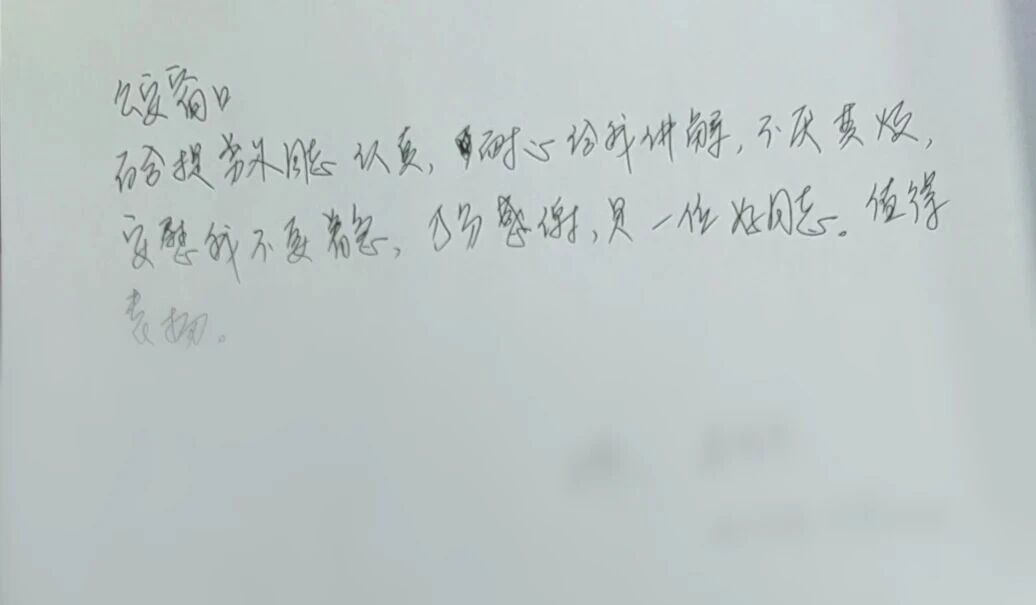 公安窗口
同志认真,耐心给我讲解,不厌其烦,
安慰我不要着急,十分感谢,是一位好同志。值得
表扬。